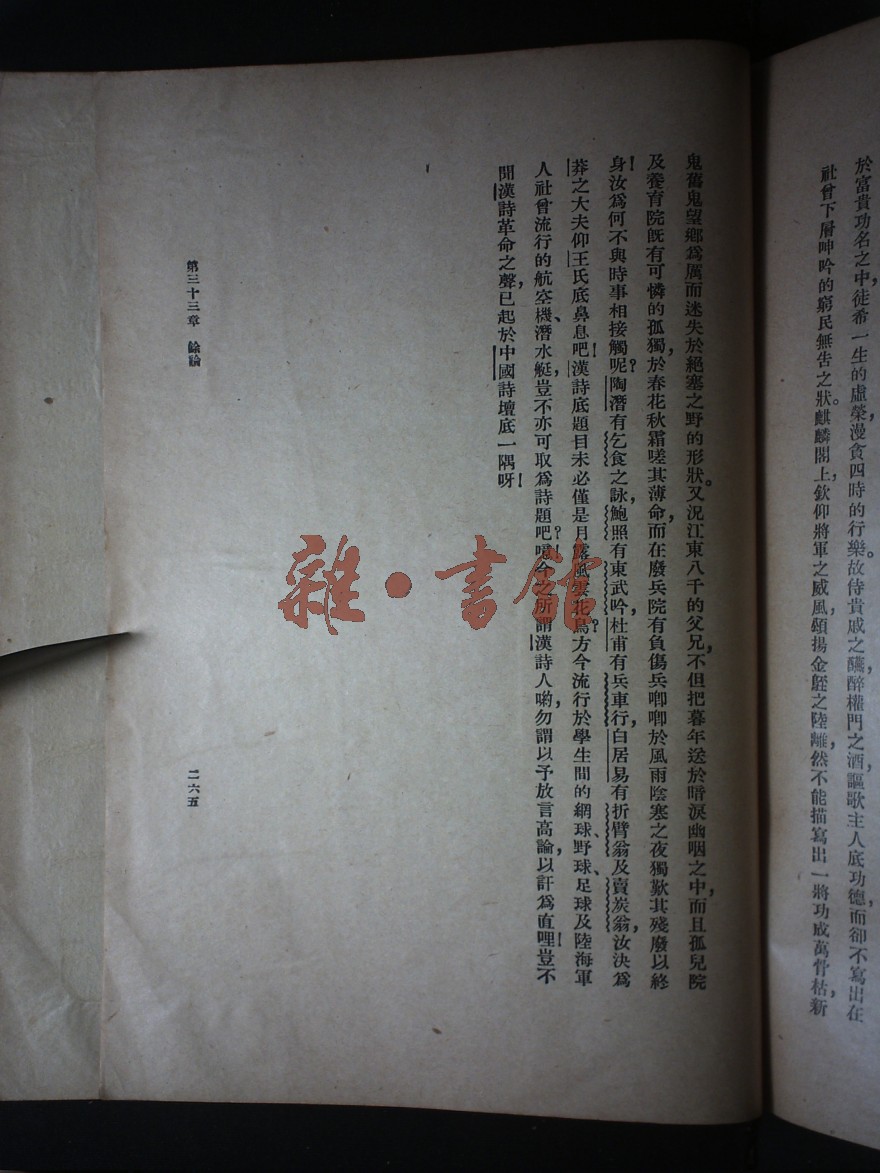 於富貴功名之中，徒希一生的虛榮，漫貪四時的行樂。故侍貴戚之讌，醉權門之酒，謳歌主人底功德，而卻不寫出在
社會下層呻吟的窮民無告之狀。麒麟閣上，欽仰將軍之威風，頌揚金銍之陸離，然不能描寫出一將功成萬骨枯，新
鬼舊鬼望鄉爲厲而迷失於絕塞之野的形狀。又況江東八千的父兄，不但把暮年送於暗淚幽咽之中，而且孤兒院
及養育院既有可憐的孤獨，於春花秋霜嗟其薄命，而在廢兵院有負傷兵喞喞於風雨陰寒之夜獨歎其殘廢以終
身！汝爲何不與時事相接觸呢？陶潛有乞食之詠，鮑照有東武吟，杜甫有兵車行，白居易有折臂翁及賣炭翁，汝決爲
莽之大夫仰王氏底鼻息吧！漢詩底題目未必僅是月露風雲花鳥？方今流行於學生間的網球、野球、足球及陸海軍
人社會流行的航空機、潛水艇，豈不亦可取爲詩題吧？噫今之所謂漢詩人喲，勿謂以予放言高論，以訐爲直哩！豈不
聞漢詩革命之聲，已起於中國詩壇底一隅呀！
第三十三章　餘論
二六五
雜·書館